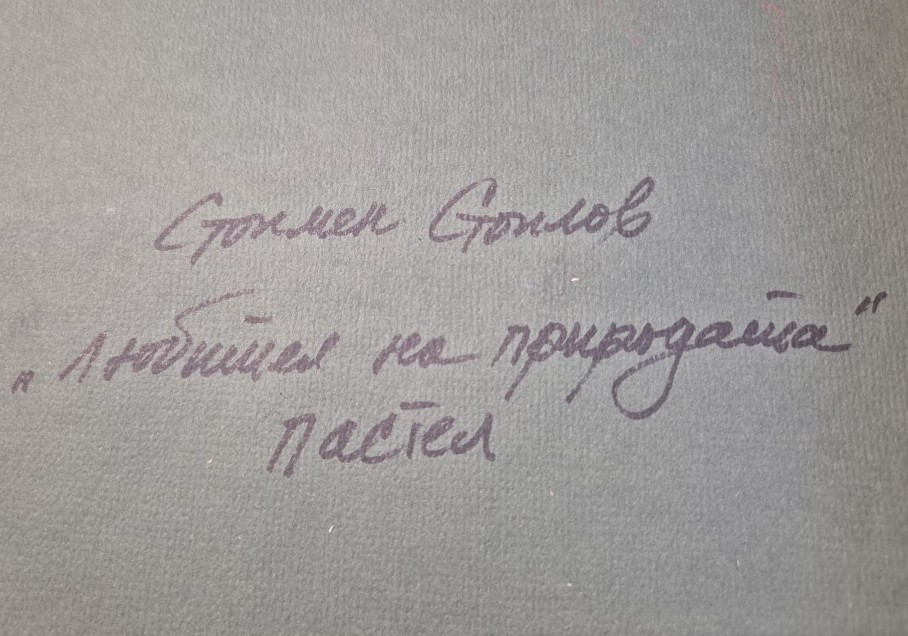 Стоимен Стоилов
„Любител на природата"
пастел